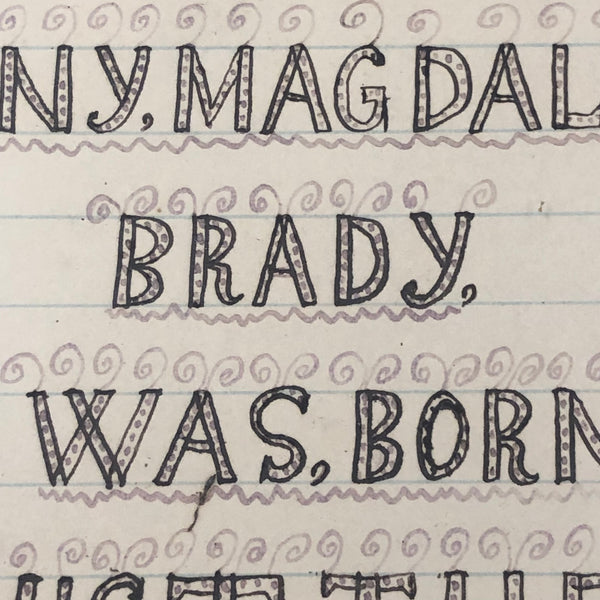 NY, MAGDAL
BRADY,
WAS, BORN